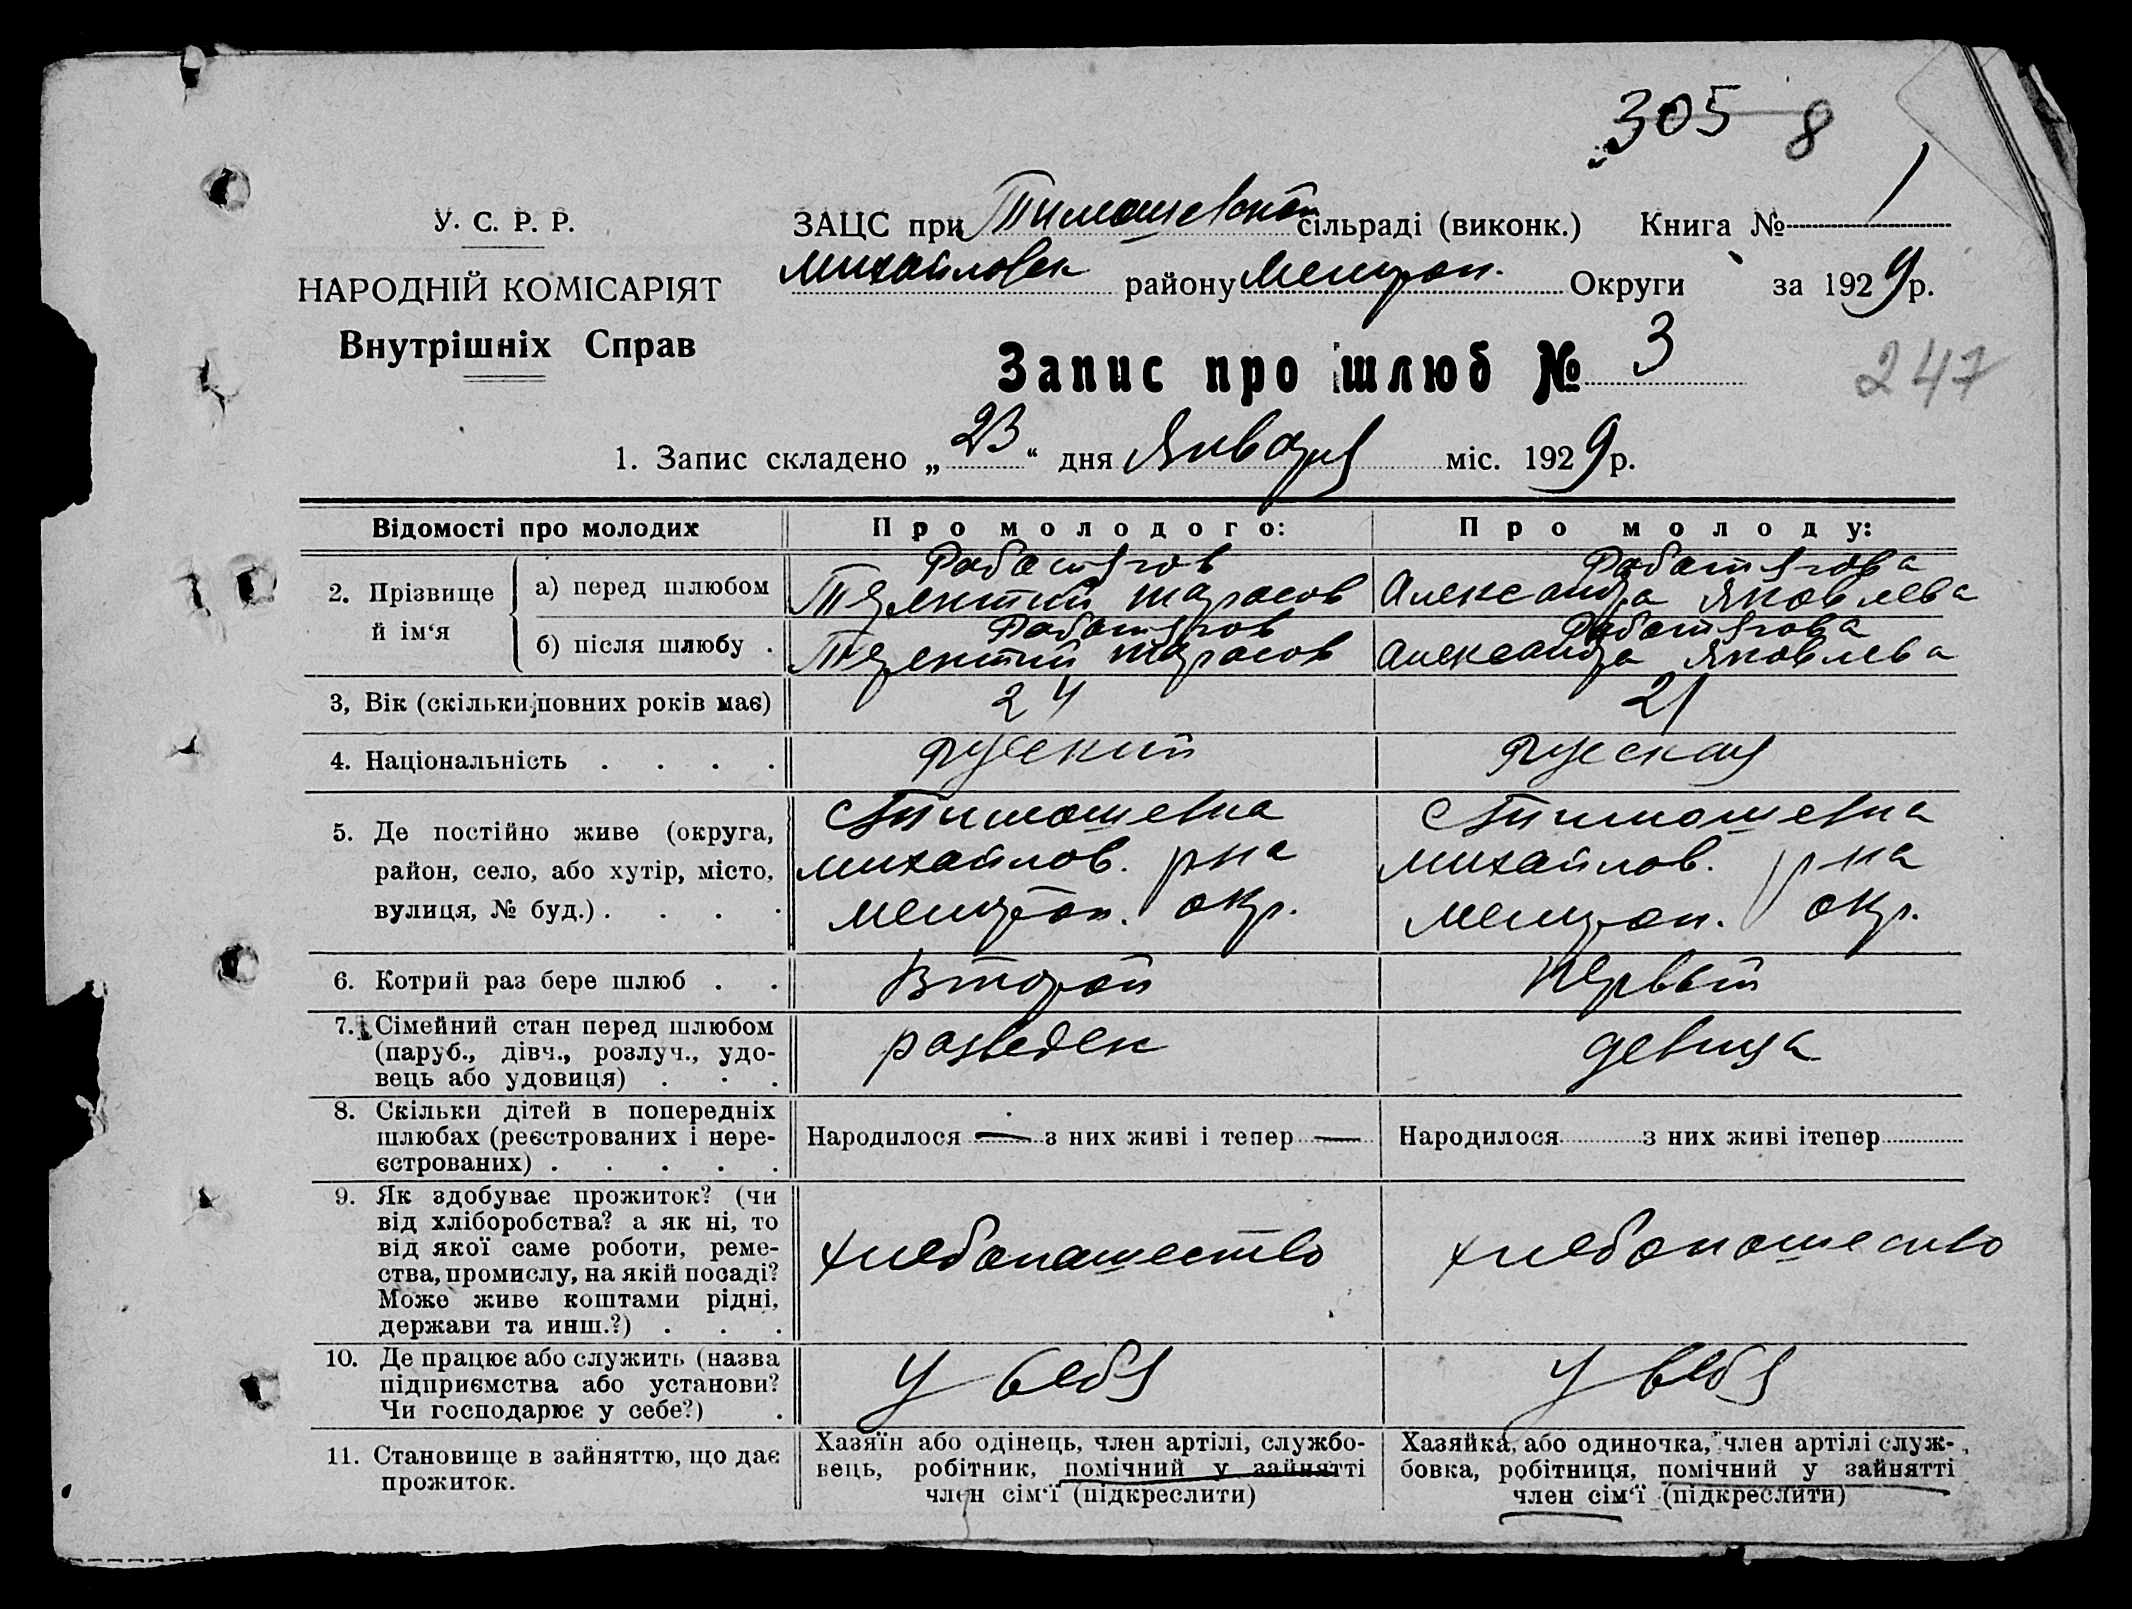 305 8
У. С. Р. Р.
ЗАЦС при Тимошевской сільраді (виконк.) Книга № 1
НАРОДНІЙ КОМІСАРІЯТ
Михайловск району Мелитоп. Округи за 1929 р.
Внутрішніх Справ
Запис про шлюб № 3
247
1. Запис складено „23“ дня Января міс. 1929 р.
Відомості про молодих
Про молодого:
Про молоду:
2. Прізвище й ім‘я
а) перед шлюбом
Работягов
Терентий Тарасов
Работягова
Александра Яковлева
б) після шлюбу .
Работягов
Терентий Тарасов
Работягова
Александра Яковлева
3, Вік (скільки повних років має)
24
21
4. Національність . . . .
Русский
Русская
5. Де постійно живе (округа,
район, село, або хутір, місто,
вулиця, № буд.) . . . .
с Тимошевка
михайлов. рна
мелитоп. окр.
с Тимошевка
михайлов. рна
мелитоп. окр.
6. Котрий раз бере шлюб . .
Второй
Первый
7. Сімейний стан перед шлюбом
(паруб., дівч., розлуч., удо-
вець або удовиця) . . .
разведен
девица
8. Скільки дітей в попередніх
шлюбах (реєстрованих і нере-
єстрованих) . . . . .
Народилося — з них живі і тепер —
Народилося з них живі ітепер
9. Як здобуває прожиток? (чи
від хліборобства? а як ні, то
від якої саме роботи, реме-
ства, промислу, на якій посаді?
Може живе коштами рідні,
держави та инш.?) . . .
хлебопашество
хлебопашество
10. Де працює або служить (назва
підприємства або установи?
Чи господарює у себе?) .
У себя
У себя
11. Становище в зайняттю, що дає
прожиток.
Хазяїн або одінець, член артілі, службо-
вець, робітник, помічний у зайнятті
член сім‘ї (підкреслити)
Хазяйка, або одиночка, член артілі служ-
бовка, робітниця, помічний у зайнятті
член сім‘ї (підкреслити)